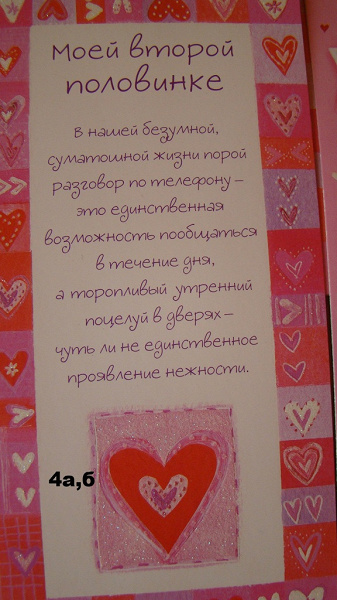 Моей второй
половинке
В нашей безумной,
суматошной жизни порой
разговор по телефону –
это единственная
возможность пообщаться
в течение дня,
а торопливый утренний
поцелуй в дверях –
чуть ли не единственное
проявление нежности.
4а,б